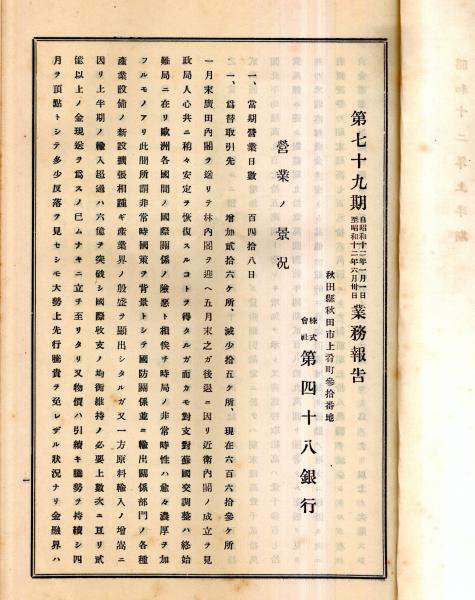 第七十九期 自昭和十二年一月一日 至昭和十二年六月卅日 業務報告
秋田縣秋田市上肴町參拾番地
株式會社 第四十八銀行
營業ノ景況
一、當期營業日數 百四拾八日
一、爲替取引先 增加貳拾六ケ所、減少拾五ケ所、現在六百六拾參ケ所
一月末廣田內閣ヲ送リテ林內閣ヲ迎ヘ五月末之ガ後退ニ因リ近衞內閣ノ成立ヲ見
政局人心共ニ稍々安定ヲ恢復スルコトヲ得タルガ而カモ對支對蘇國交調整ハ終始
難局ニ在リ歐洲各國間ノ國際關係ノ險惡ト相俟チ時局ノ非常時性ハ愈々濃厚ヲ加
フルモノアリ此間所謂非常時國策ヲ背景トシテ國防關係並ニ輸出關係部門ノ各種
產業設備ノ新設擴張相踵ギ產業界ノ殷盛ヲ顯出シタルガ又一方原料輸入ノ增嵩ニ
因リ上半期ノ輸入超過ハ六億ヲ突破シ國際收支ノ均衡維持ノ必要上數次ニ亙リ貳
億以上ノ金現送ヲ爲スノ已ムナキニ立チ至リタリ又物價ハ引續キ騰勢ヲ持續シ四
月ヲ頂點トシテ多少反落ヲ見セシモ大勢上先行騰貴ヲ免レザル狀況ナリ金融界ハ